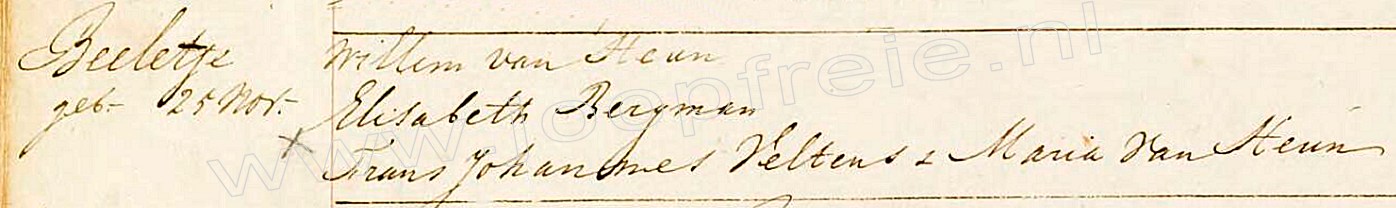 Beeletje
geb. 25 Nov.
Willem van Heun
Elisabeth Bergman
Frans Johannes Veltens & Maria van Heun
www.joopfreie.nl